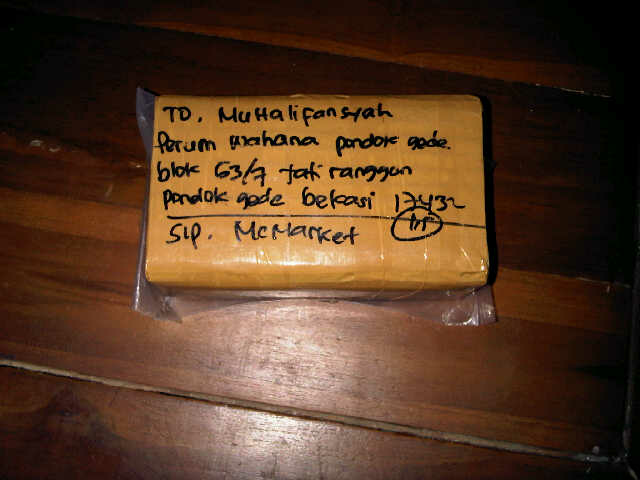 TO. MuHalifansyah
Perum wahana pondok gede
blok G3/7 jati ranggon
pondok gede bekasi 17432
Sip. McMarket